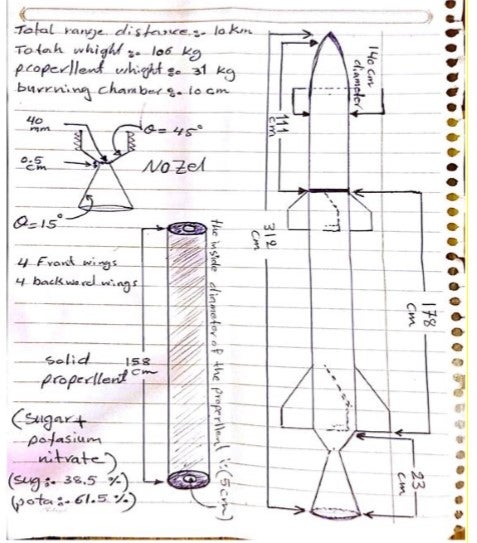 Total range distance:- 10 km
Totah whight:- 106 kg
properllent whight:- 31 kg
burrning chamber:- 10 cm
140 cm
diameter
40
mm
Q=45°
0.5
cm
Nozel
111
cm
Q=15°
312
cm
4 Front wings
4 backword wings
the inside diameter of the properllent is (5cm)
178
cm
solid
properllent
158
cm
(sugar+
potasium
nitrate)
(sug:- 38.5 %)
(pota:- 61.5 %)
23
cm